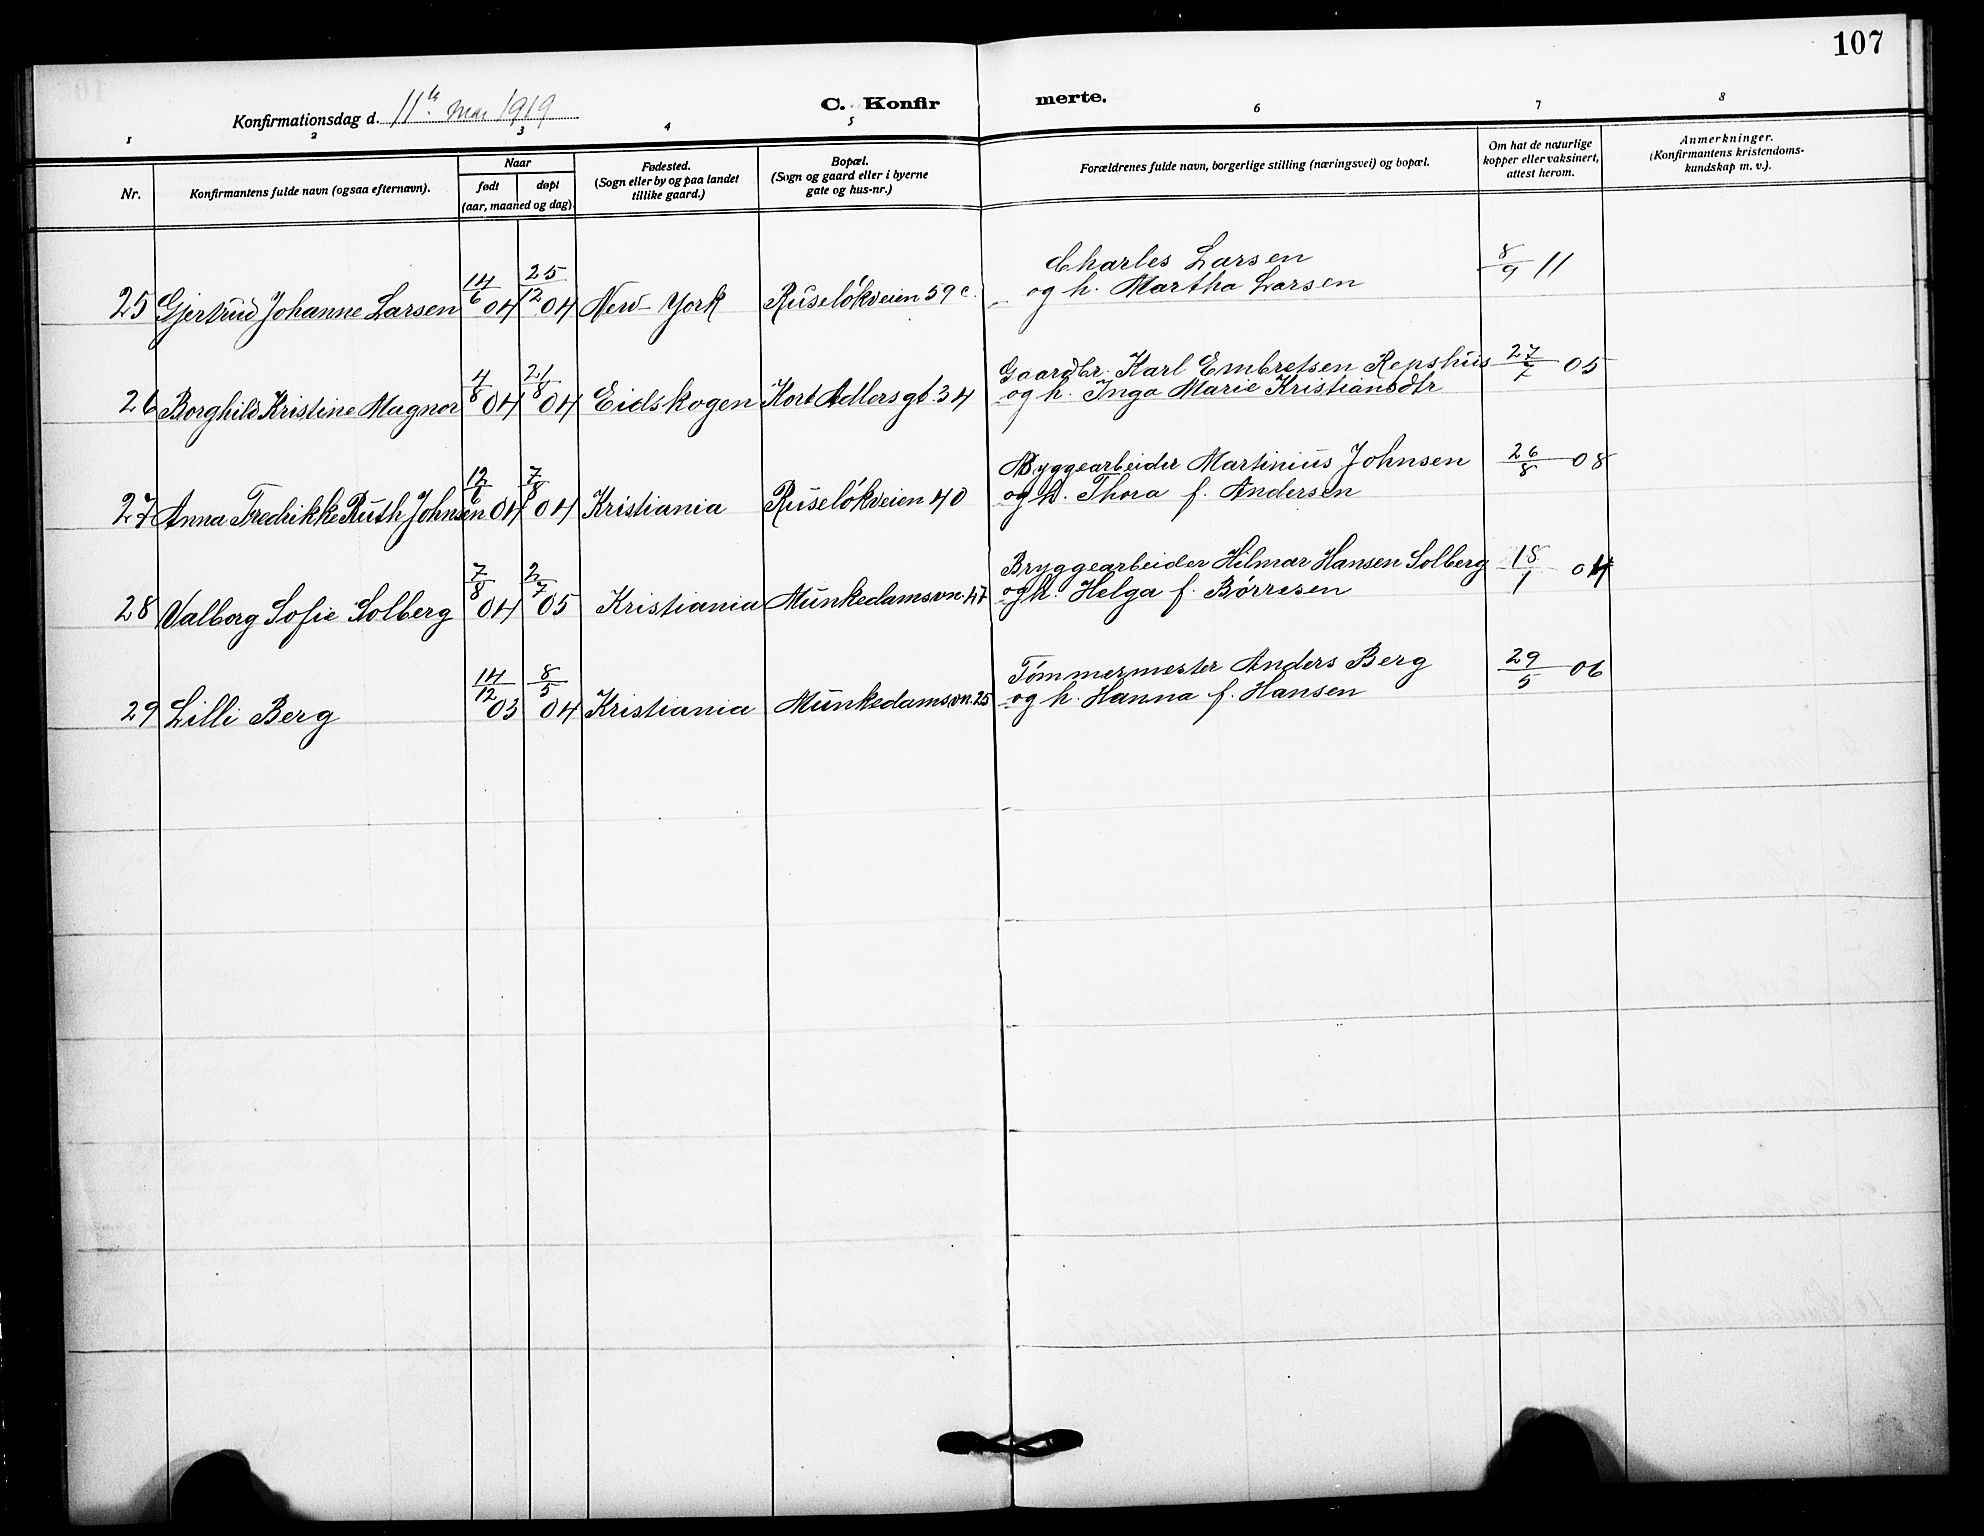 107
Konfirmationsdag d. 11te mai 1919
C. Konfirmerte.
1 2 3 4 5 6 7 8
Nr.
Konfirmantens fulde navn (ogsaa efternavn).
Naar
født døpt
(aar, maaned og dag).
Fødested.
(Sogn eller by og paa landet
tillike gaard.)
Bopæl.
(Sogn og gaard eller i byerne
gate og hus-nr.)
Forældrenes fulde navn, borgerlige stilling (næringsvei) og bopæl.
Om hat de naturlige
kopper eller vaksinert,
attest herom.
Anmerkninger.
(Konfirmantens kristendoms-
kundskap m. v.).
25 Gjertrud Johanne Larsen 14/6 04 25/12 04 New-York Ruseløkveien 59 c.
Charles Larsen
og h. Martha Larsen
8/9 11
26 Borghild Kristine Magnor 4/8 04 21/8 04 Eidskogen Kort Adlersgt. 34
Gaardbr. Karl Embretsen Repshus
og h. Inga Marie Kristiansdtr
27/7 05
27 Anna Fredrikke Ruth Johnsen 12/6 04 7/8 04 Kristiania Ruseløkveien 40
Bryggearbeider Martinius Johnsen
og h. Thora f. Andersen
26/8 08
28 Valborg Sofie Solberg 7/8 04 2/7 05 Kristiania Munkedamsvn. 47
Bryggearbeider Hilmar Hansen Solberg
og h. Helga f. Børresen
18/1 04
29 Lilli Berg 14/12 03 8/5 04 Kristiania Munkedamsvn. 25
Tømmermester Anders Berg
og h. Hanna f. Hansen
29/5 06